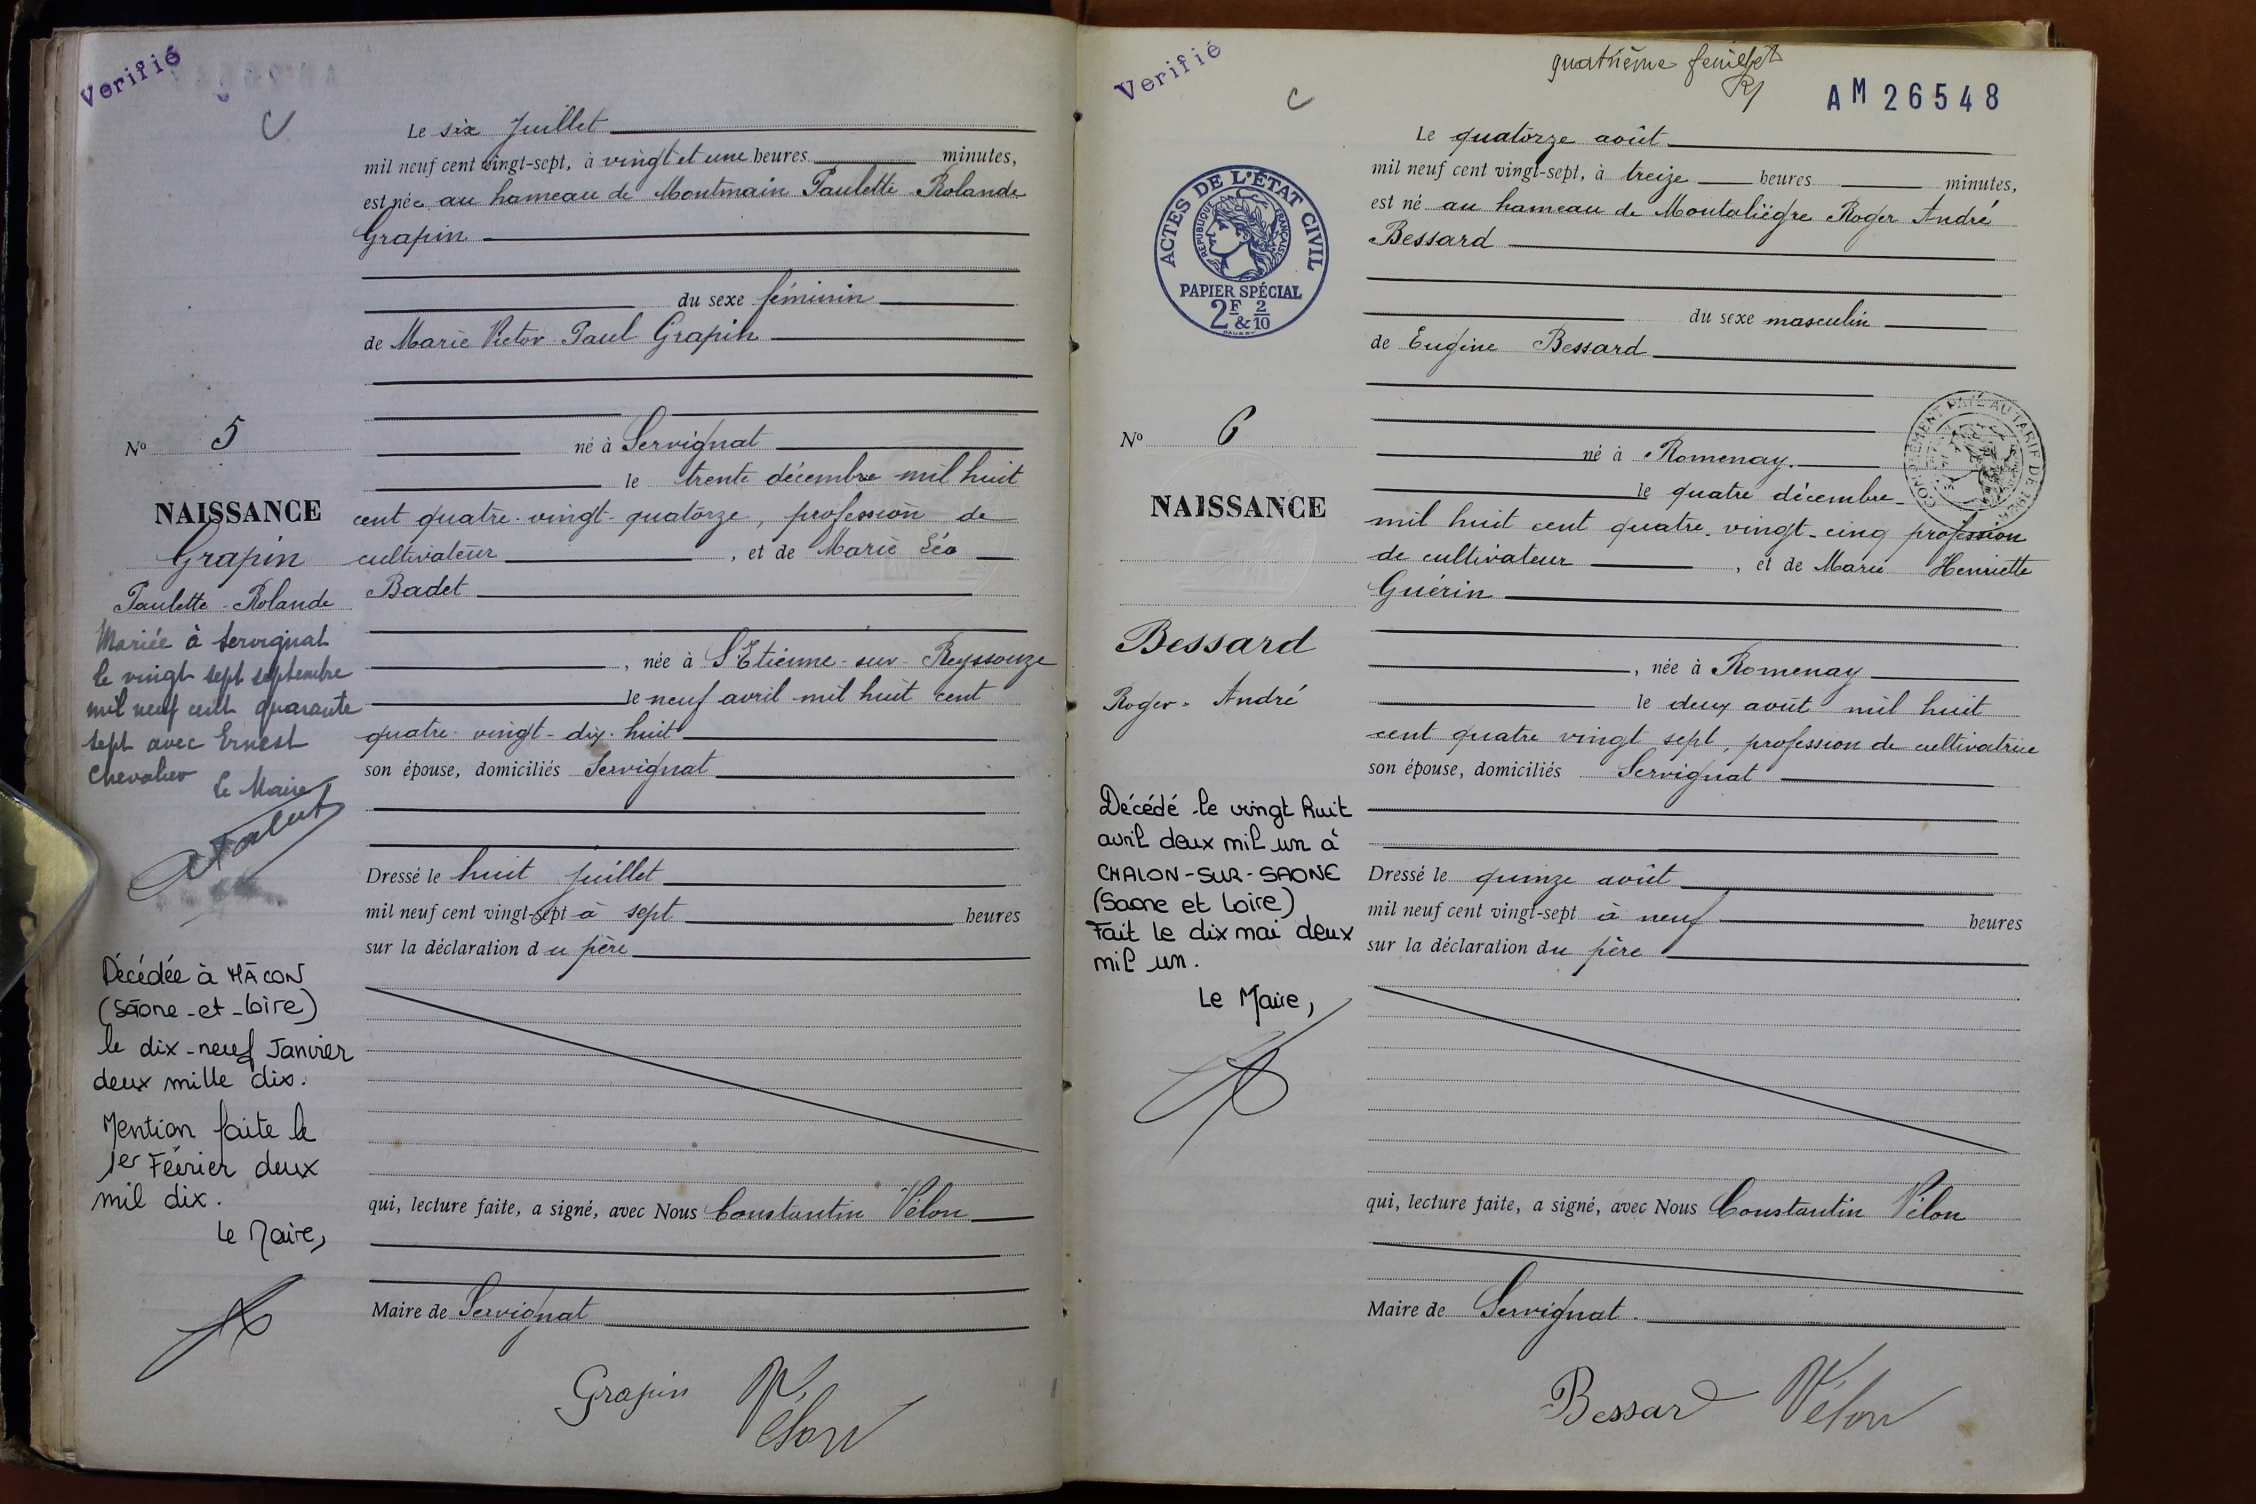 Verifié
Le six Juillet
mil neuf cent vingt-sept, à vingt et une heures minutes,
est née au hameau de Montmain Paulette Rolande
Grapin
du sexe féminin
de Marie Victor Paul Grapin
né à Servignat
le trente décembre mil huit
cent quatre-vingt-quatorze, profession de
cultivateur, et de Marie Léa
Badet
, née à St Etienne-sur-Reyssouze
le neuf avril mil huit cent
quatre-vingt-dix-huit
son épouse, domiciliés Servignat
Dressé le huit juillet
mil neuf cent vingt-sept à sept heures
sur la déclaration du père
qui, lecture faite, a signé, avec Nous Constantin Vélon
Maire de Servignat
Grapin Vélon
No 5
NAISSANCE
Grapin
Paulette-Rolande
Mariée à Servignat
le vingt sept septembre
mil neuf cent quarante
sept avec Ernest
Chevalier
Le Maire
Décédée à MÂCON
(Saône-et-Loire)
le dix-neuf Janvier
deux mille dix.
Mention faite le
1er Février deux
mil dix.
Le Maire,
Verifié
quatrième feuillet
AM 26548
Le quatorze août
mil neuf cent vingt-sept, à treize heures minutes,
est né au hameau de Montaliègre Roger André
Bessard
du sexe masculin
de Eugène Bessard
né à Romenay.
le quatre décembre
mil huit cent quatre-vingt-cinq profession
de cultivateur, et de Marie Henriette
Guérin
, née à Romenay
le deux août mil huit
cent quatre vingt sept, profession de cultivatrice
son épouse, domiciliés Servignat
Dressé le quinze août
mil neuf cent vingt-sept à neuf heures
sur la déclaration du père
qui, lecture faite, a signé, avec Nous Constantin Vélon
Maire de Servignat.
Bessard Vélon
ACTES DE L'ÉTAT CIVIL
RÉPUBLIQUE FRANÇAISE
PAPIER SPÉCIAL
2F & 2/10
No 6
NAISSANCE
Bessard
Roger-André
Décédé le vingt huit
avril deux mil un à
CHALON-SUR-SAONE
(Saone et Loire)
Fait le dix mai deux
mil un.
Le Maire,